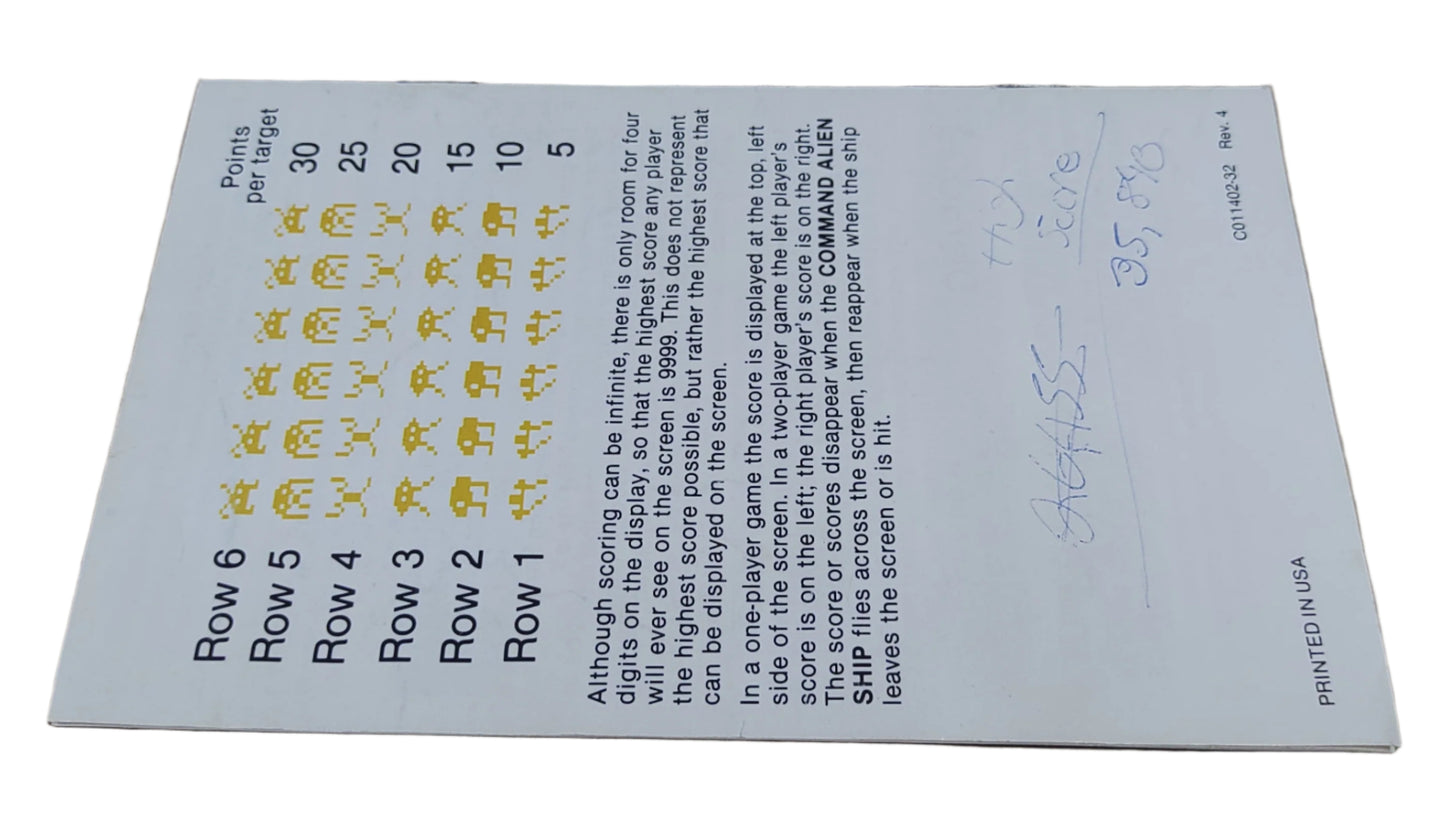 Points
per target
Row 6 30
Row 5 25
Row 4 20
Row 3 15
Row 2 10
Row 1 5
Although scoring can be infinite, there is only room for four
digits on the display, so that the highest score any player
will ever see on the screen is 9999. This does not represent
the highest score possible, but rather the highest score that
can be displayed on the screen.
In a one-player game the score is displayed at the top, left
side of the screen. In a two-player game the left player's
score is on the left; the right player's score is on the right.
The score or scores disappear when the COMMAND ALIEN
SHIP flies across the screen, then reappear when the ship
leaves the screen or is hit.
score
PRINTED IN USA
C011402-32 Rev. 4